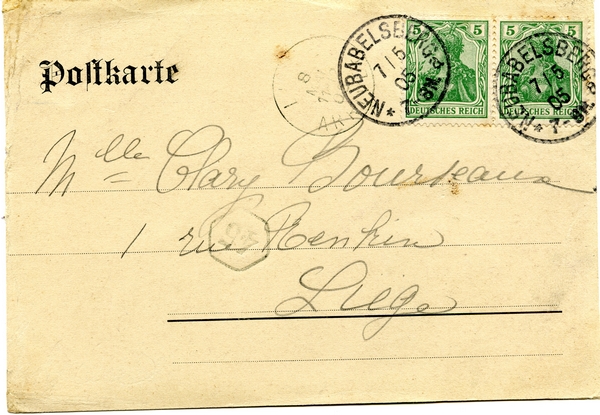 Postkarte
5 5 5 5
DEUTSCHES REICH DEUTSCHES REICH
NEUBABELSBERG
7/5
05
7-8N.
NEUBABELSBERG
7/5
05
7-8N.
Mlle Clary Bourseaux
1 rue Renkin
Liège